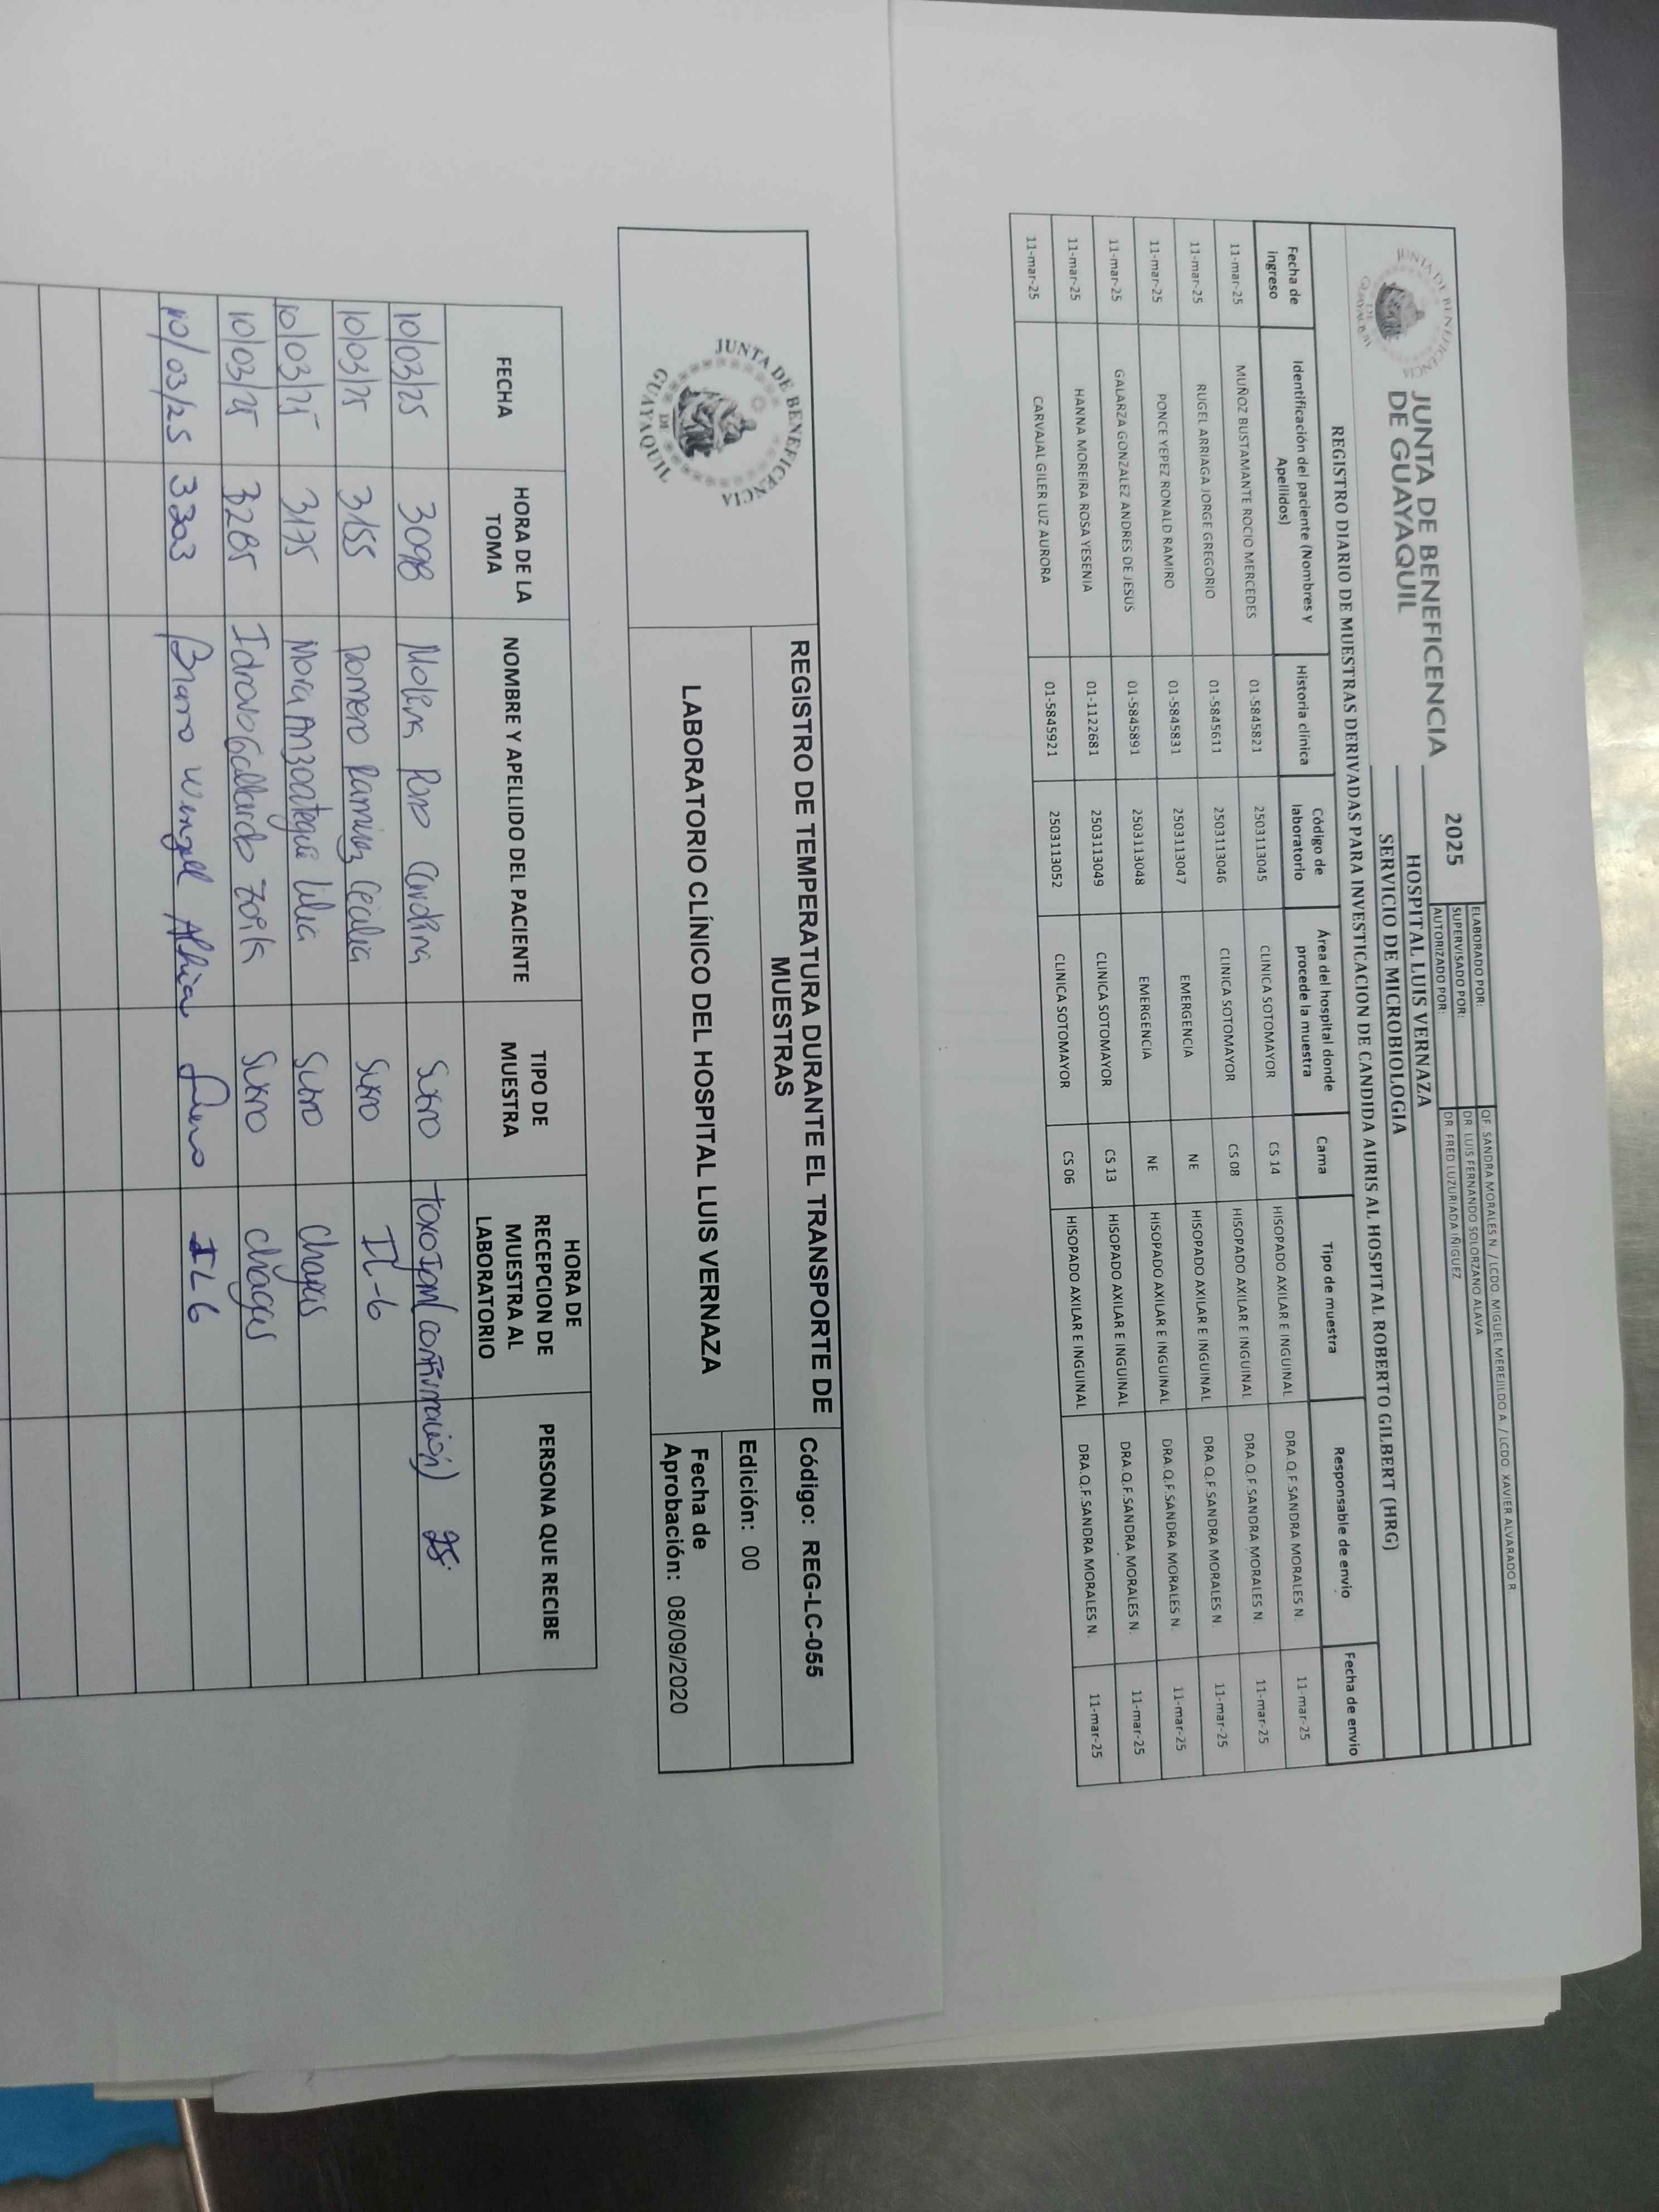 JUNTA DE BENEFICENCIA DE GUAYAQUIL
JUNTA DE BENEFICENCIA
DE GUAYAQUIL
2025
ELABORADO POR: QF. SANDRA MORALES N. / LCDO. MIGUEL MEREJILDO A. / LCDO. XAVIER ALVARADO R.
SUPERVISADO POR: DR. LUIS FERNANDO SOLORZANO ALAVA
AUTORIZADO POR: DR. FRED LUZURIADA IÑIGUEZ
HOSPITAL LUIS VERNAZA
SERVICIO DE MICROBIOLOGIA
REGISTRO DIARIO DE MUESTRAS DERIVADAS PARA INVESTIGACION DE CANDIDA AURIS AL HOSPITAL ROBERTO GILBERT (HRG)
Fecha de ingreso Identificación del paciente (Nombres y Apellidos) Historia clínica Código de laboratorio Área del hospital donde procede la muestra Cama Tipo de muestra Responsable de envio Fecha de envio
11-mar-25 MUÑOZ BUSTAMANTE ROCIO MERCEDES 01-5845821 2503113045 CLINICA SOTOMAYOR CS 14 HISOPADO AXILAR E INGUINAL DRA.Q.F.SANDRA MORALES N. 11-mar-25
11-mar-25 RUGEL ARRIAGA JORGE GREGORIO 01-5845611 2503113046 CLINICA SOTOMAYOR CS 08 HISOPADO AXILAR E INGUINAL DRA.Q.F.SANDRA MORALES N. 11-mar-25
11-mar-25 PONCE YEPEZ RONALD RAMIRO 01-5845831 2503113047 EMERGENCIA NE HISOPADO AXILAR E INGUINAL DRA.Q.F.SANDRA MORALES N. 11-mar-25
11-mar-25 GALARZA GONZALEZ ANDRES DE JESUS 01-5845891 2503113048 EMERGENCIA NE HISOPADO AXILAR E INGUINAL DRA.Q.F.SANDRA MORALES N. 11-mar-25
11-mar-25 HANNA MOREIRA ROSA YESENIA 01-1122681 2503113049 CLINICA SOTOMAYOR CS 13 HISOPADO AXILAR E INGUINAL DRA.Q.F.SANDRA MORALES N. 11-mar-25
11-mar-25 CARVAJAL GILER LUZ AURORA 01-5845921 2503113052 CLINICA SOTOMAYOR CS 06 HISOPADO AXILAR E INGUINAL DRA.Q.F.SANDRA MORALES N. 11-mar-25
JUNTA DE BENEFICENCIA DE GUAYAQUIL
REGISTRO DE TEMPERATURA DURANTE EL TRANSPORTE DE
MUESTRAS
LABORATORIO CLÍNICO DEL HOSPITAL LUIS VERNAZA
Código: REG-LC-055
Edición: 00
Fecha de
Aprobación: 08/09/2020
FECHA HORA DE LA TOMA NOMBRE Y APELLIDO DEL PACIENTE TIPO DE MUESTRA HORA DE RECEPCION DE MUESTRA AL LABORATORIO PERSONA QUE RECIBE
10/03/25 3098 Molina Carolina Suero Toxo IgM (confirmación)
10/03/25 3155 Romero Ramirez Cecilia Suero IL-6
10/03/25 3175 Mora Anzoategui Lilia Suero Chagas
10/03/25 3285 Idrovo Gallardo Zoila Suero chagas
10/03/25 3303 Suero IL-6